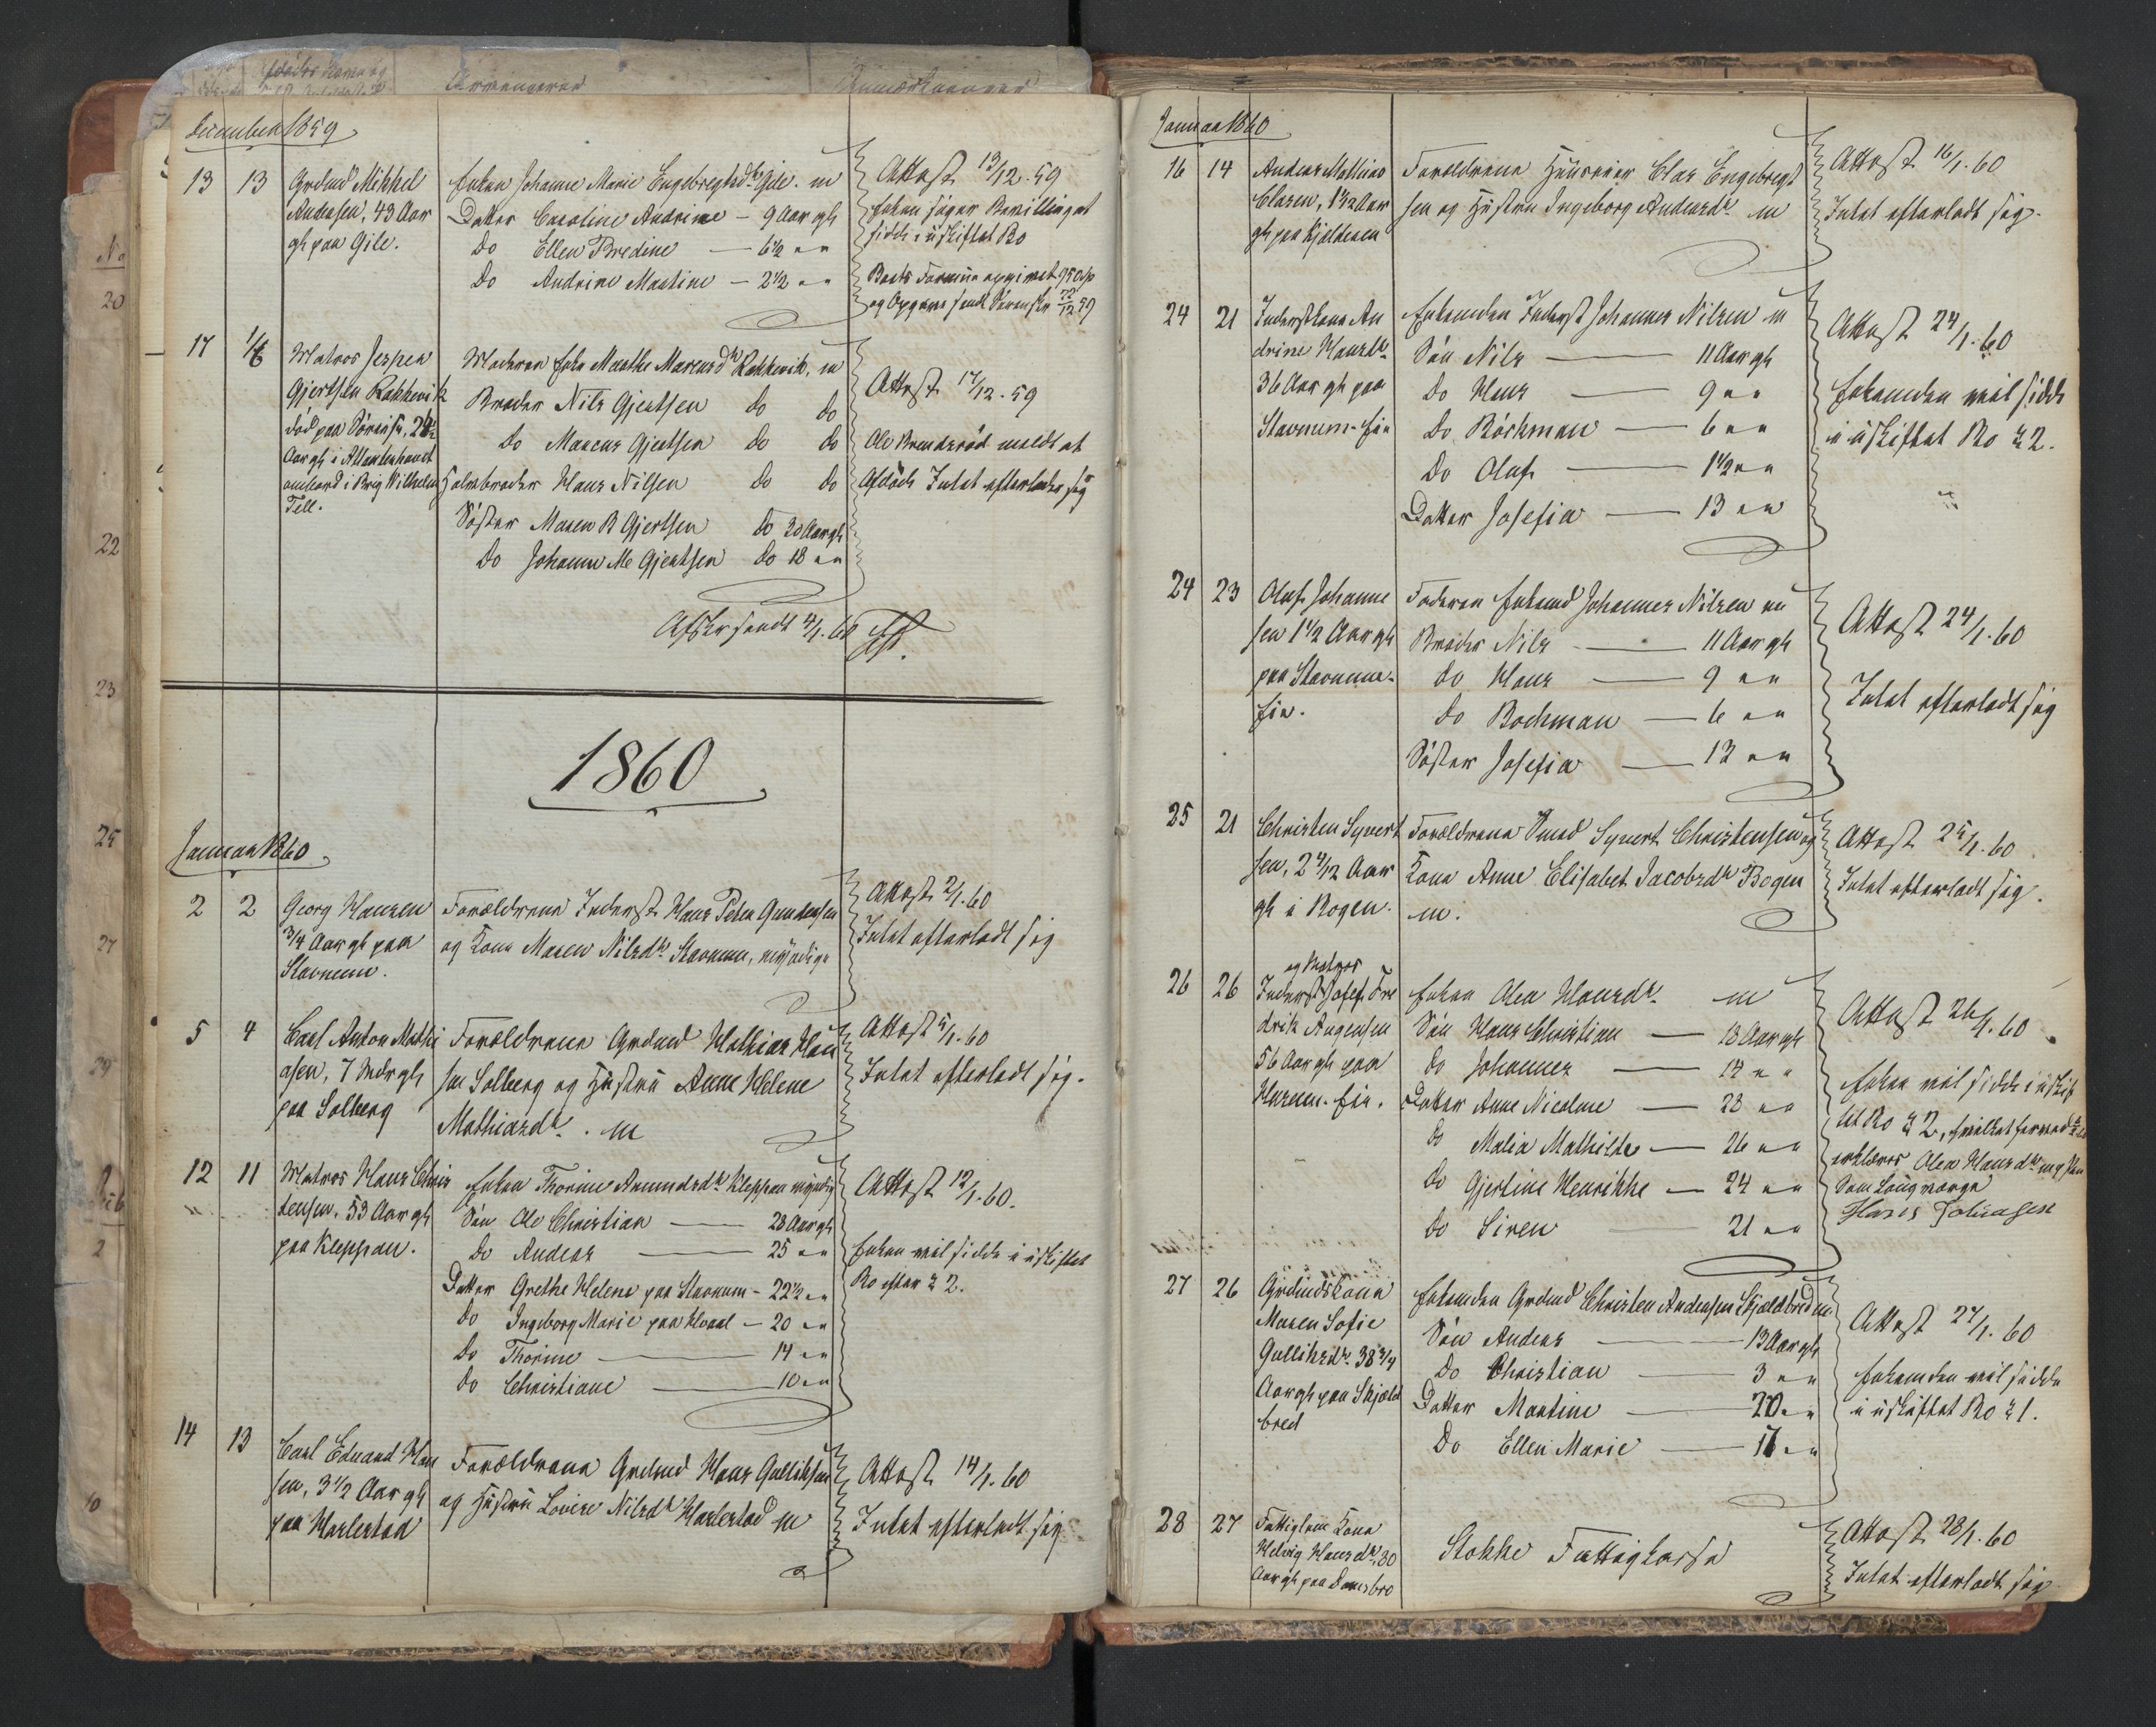 December 1859
13 13 Grdmd Mikkel
Andersen, 43 Aar
gl. paa Gile.
Enken Johanne Marie Engebregtsdtr Gile. m
Datter Caroline Andrine — 9 Aar gl
do Ellen Bredine — 6 1/2 " "
do Andrine Martine — 2 1/2 " "
Attest 13/12. 59
Enken siger Bevillinget
sidde i uskiftet Bo
Boets Formue opgivet 950 Sp
17 Matros Jesper
Gjertsen Rakkevik
død paa Søreise, 24 1/2
Aar gl i Atlanterhavet
ombord i Brig Wilhelm
Tell.
Moderen Enke Marthe Marcusdtr Rakkevik, m
Broder Nils Gjertsen do do
do Marcus Gjertsen do do
Halvbroder Hans Nilsen do do
Søster Maren B Gjertsen do 20 Aar gl
do Johanne M Gjertsen do 18 " "
Attest 17/12. 59
Ole Brunderød meldt at
Afdøde Intet efterlader sig
Afskr sendt 4/1. 60
1860
Januar 1860
2 2 Georg Hansen
3/4 Aar gl paa
Stavnum.
Forældrene Inderst Hans Peter Gundersen
og Kone Maren Nilsdtr Stavnum, myndige
Attest 2/1. 60
Intet efterladt sig
5 4 Carl Anton Mathi
asen, 7 Mdr gl
paa Solberg
Forældrene Grdmd Mathias Han
sen Solberg og Hustru Anne Helene
Mathiasdtr. m
Attest 5/1. 60
Intet efterladt sig.
12 11 Matros Hans Chris
tensen, 53 Aar gl
paa Kleppan.
Enken Thorine Amundsdtr Kleppan myndig
Søn Ole Christian — 28 Aar gl
do Andreas — 25 " "
Datter Grethe Helene paa Stavnum — 22 1/2 " "
do Ingeborg Marie paa Hvaal — 20 " "
do Thorine — 14 " "
do Christiane — 10 " "
Attest 12/1. 60.
Enken vil sidde i uskiftet
Bo efter § 2.
14 13 Carl Eduard Han
sen, 3 1/2 Aar gl
paa Harlestad
Forældrene Grdmd Hans Gulliksen
og Hustru Lovise Nilsdtr Harlestad m
Attest 14/1. 60
Intet efterladt sig
Januar 1860
16 14 Anders Mathias
Clasen, 1 1/2 Aar
gl paa Kjelderen
Forældrene Huusmand Clas Engebregt
sen og Hustru Ingeborg Andersdtr m
Attest 16/1. 60
Intet efterladt sig.
24 21 Inderstkone An
drine Hansdtr
36 Aar gl paa
Stavnum-Eie
Enkemden Inderst Johannes Nilsen m
Søn Nils — 11 Aar gl
do Hans — 9 " "
do Bóchman — 6 " "
do Oluf — 1 1/2 " "
Datter Josefia — 13 " "
Attest 24/1. 60
Enkemden vil sidde
i uskiftet Bo § 2.
24 23 Oluf Johanne
sen 1 1/2 Aar gl
paa Stavnum-
Eie.
Faderen Enkemd Johannes Nilsen m
Broder Nils — 11 Aar gl
do Hans — 9 " "
do Bochman — 6 " "
Søster Josefia — 13 " "
Attest 24/1. 60
Intet efterladt sig
25 21 Christen Syvert
sen, 2 4/12 Aar
gl i Bogen.
Forældrene Smed Syvert Christensen og
Kone Anne Elisabet Jacobsdtr Bogen
m.
Attest 25/1. 60
Intet efterladt sig.
og Matros
26 26 Inderst Josef Fre
drik Augensen
56 Aar gl paa
Eie.
Enken Olea Hansdtr m
Søn Hans Christian — 18 Aar gl
do Johannes — 14 " "
Datter Anne Nicoline — 28 " "
do Malia Mathilde — 26 " "
do Gjertine Henrikke — 24 " "
do Siren — 21 " "
Attest 26/1. 60
Enken vil sidde i uskif
tet Bo § 2, hvilket
erklæres Olea Hansdtr
Som Laugværge
Hans
27 26 Grdmdskone
Maren Sofie
Gulliksdtr 38 3/4
Aar gl paa Skjeld
bred
Enkemden Grdmd Christen Andersen Skjeldbred m
Søn Anders — 13 Aar gl
do Christian — 3 " "
Datter Martine — 20 " "
do Ellen Marie — 17 " "
Attest 27/1. 60
Enkemden vil sidde
i uskiftet Bo § 1.
28 27 Fattiglem Kone
Helvig Hansdtr, 80
Aar gl paa
Stokke Fattigkasse
Attest 28/1. 60
Intet efterladt sig